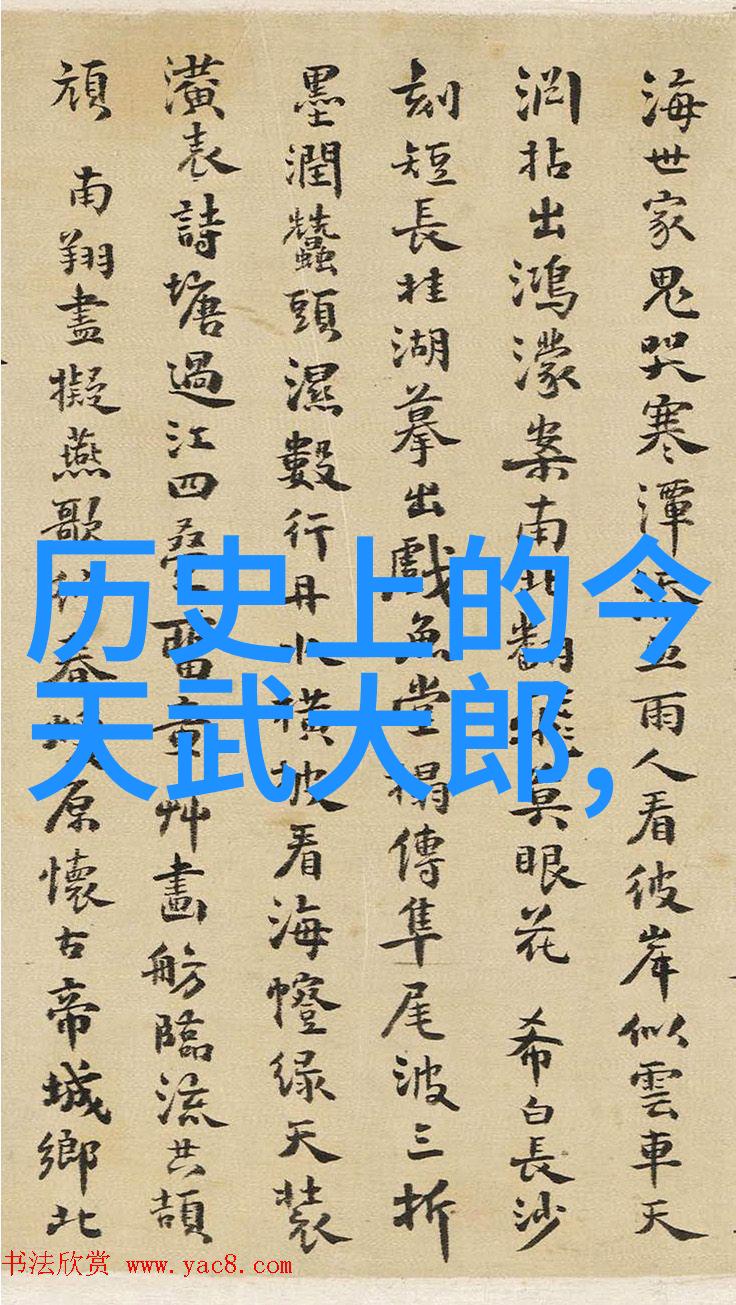 历史上的今
天武大郎,
海世家鬼哭寒潭雨人看彼岸似雲車天
淵拈出鴻濛案南北翻眼花 希白長沙
刻短長桂湖摹出戲魚堂榻傳隼尾波三折
墨潤蠶頭濕數行丹水橫披看海幢綠天裝
潢表詩塘過江四疊留章艸畫舫臨流共頡
頏 南翔盡擬燕歌行春原懷古帝城鄉北
书法欣赏 www.yac8.com